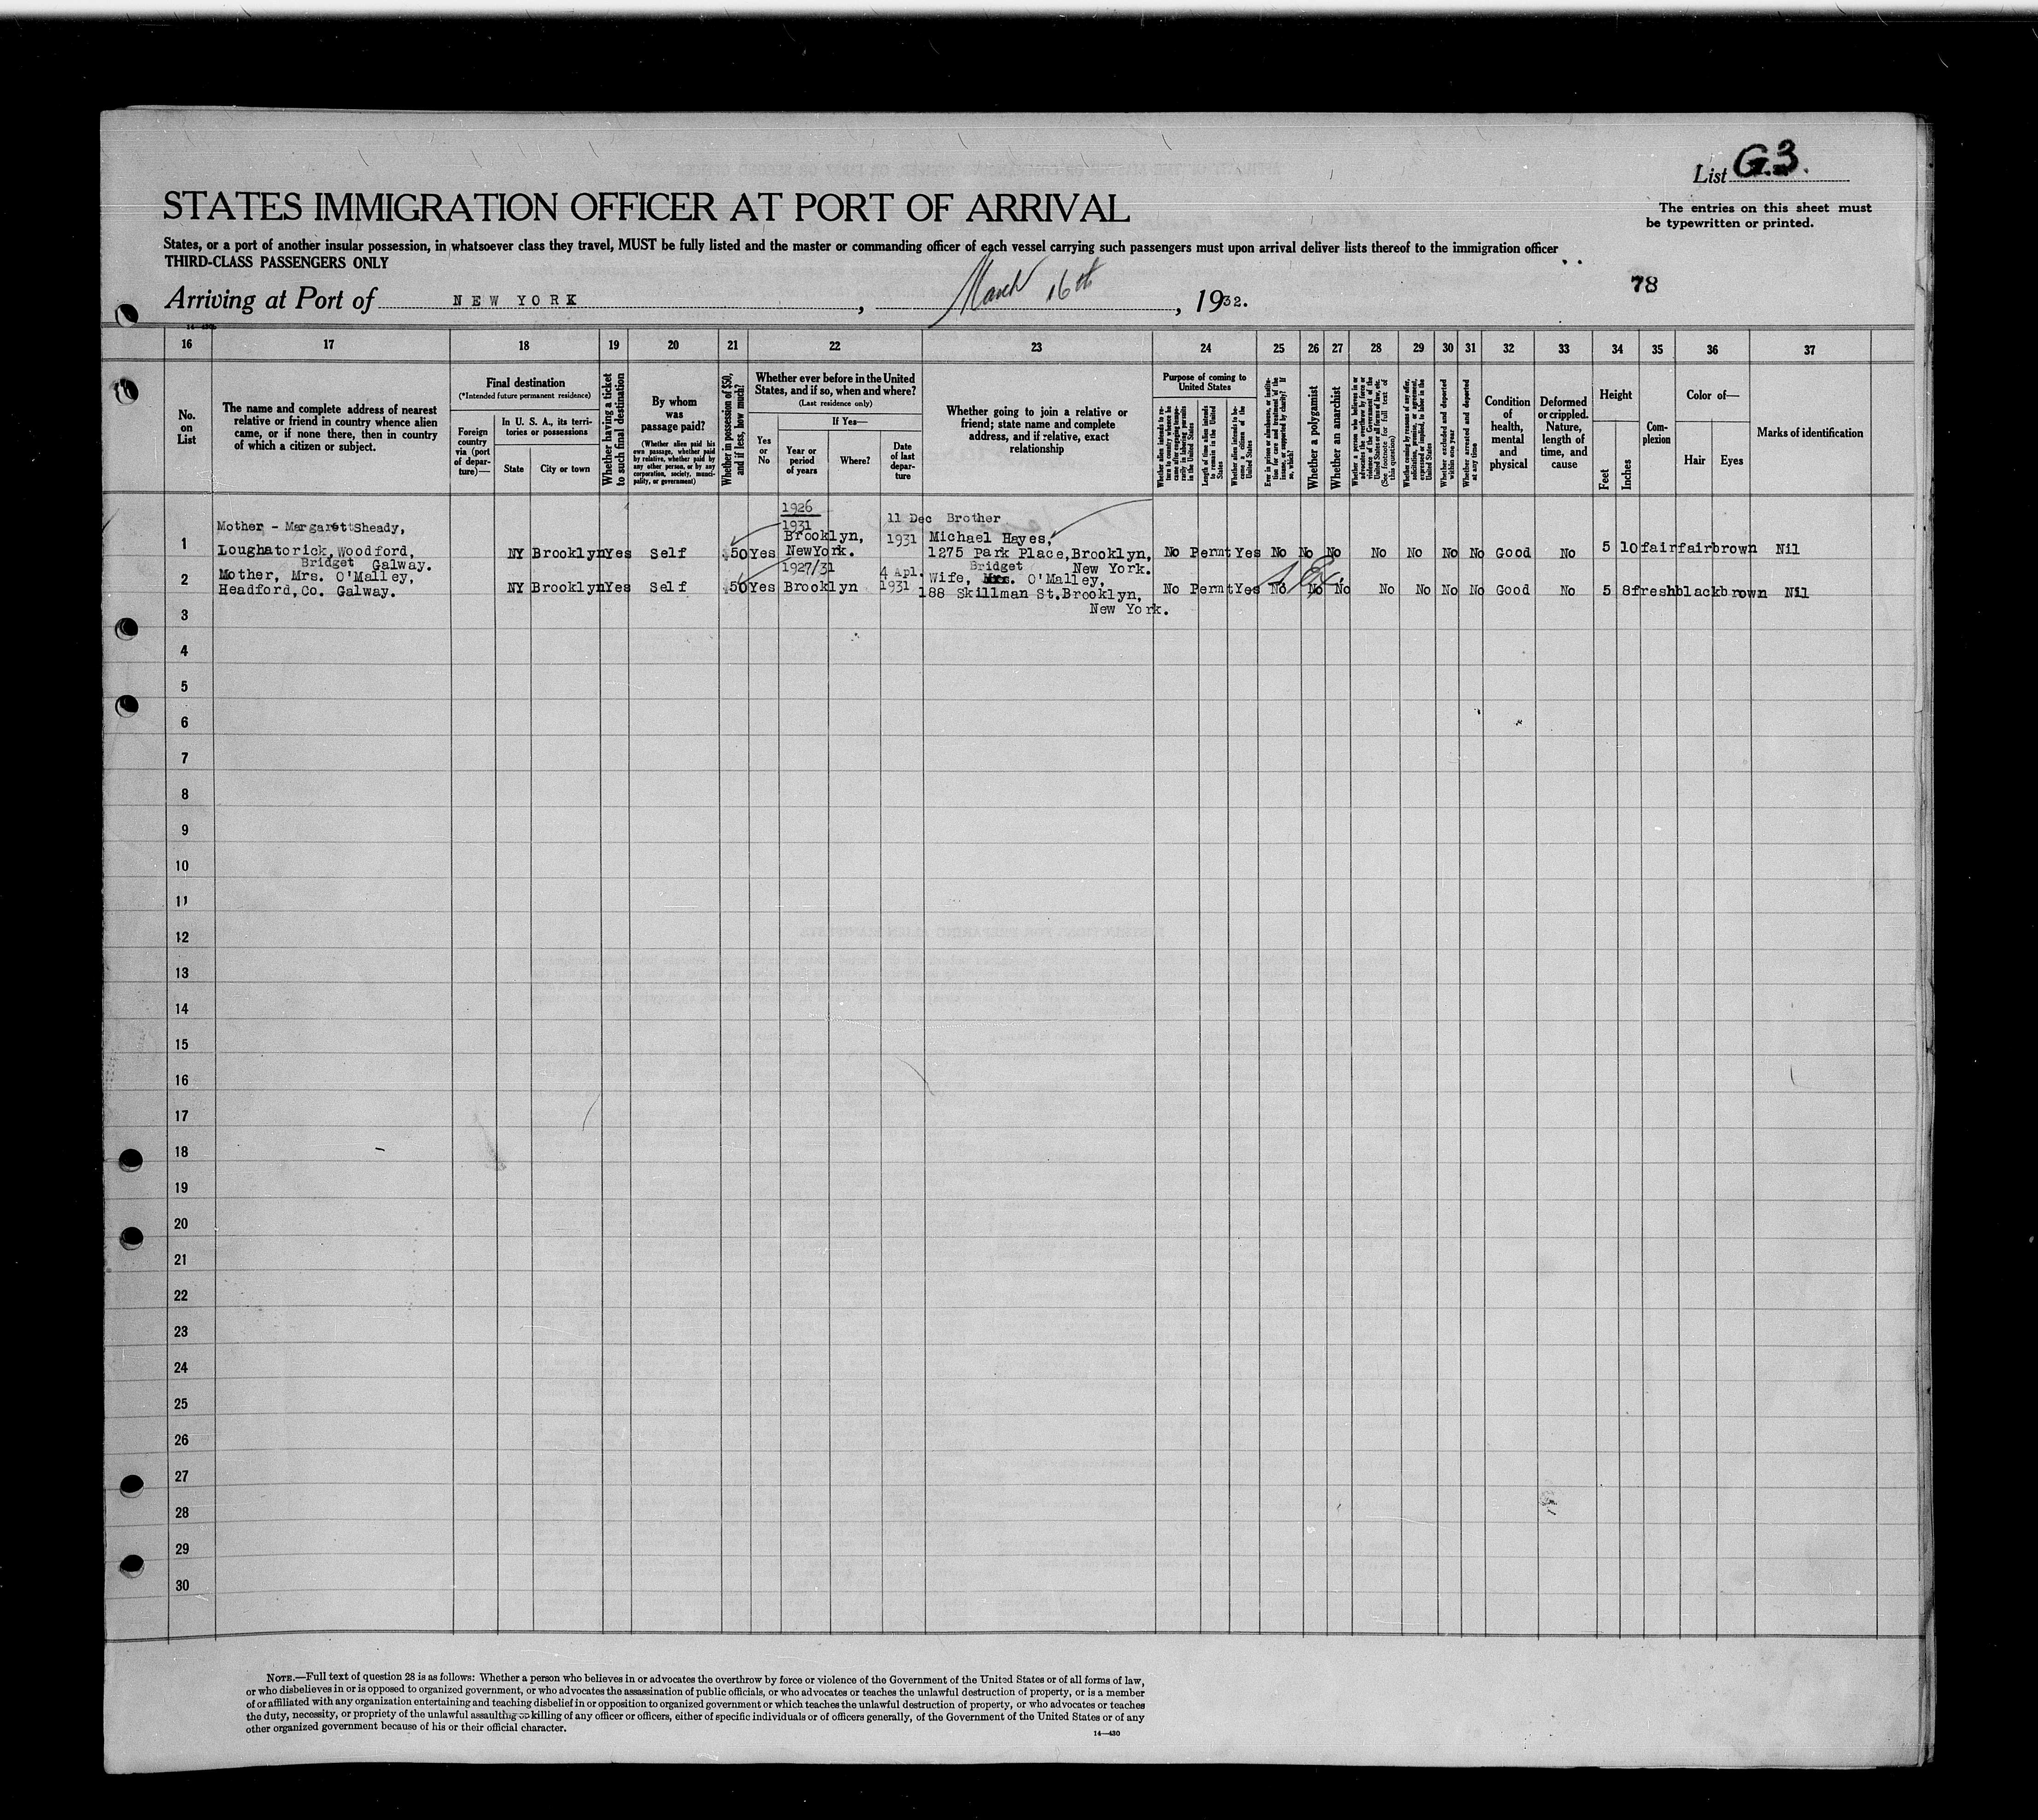 List G.3.
STATES IMMIGRATION OFFICER AT PORT OF ARRIVAL
The entries on this sheet must
be typewritten or printed.
States, or a port of another insular possession, in whatsoever class they travel, MUST be fully listed and the master or commanding officer of each vessel carrying such passengers must upon arrival deliver lists thereof to the immigration officer
THIRD-CLASS PASSENGERS ONLY
78
Arriving at Port of NEW YORK, March 16th, 1932.
14-430
16 17 18 19 20 21 22 23 24 25 26 27 28 29 30 31 32 33 34 35 36 37
No.
on
List
The name and complete address of nearest
relative or friend in country whence alien
came, or if none there, then in country
of which a citizen or subject.
Final destination
(*Intended future permanent residence)
Foreign
country
via (port
of depar-
ture)—
In U. S. A., its terri-
tories or possessions
State
City or town
Whether having a ticket
to such final destination
By whom
was
passage paid?
(Whether alien paid his
own passage, whether paid
by relative, whether paid by
any other person, or by any
corporation, society, munici-
pality, or government)
Whether in possession of $50,
and if less, how much?
Whether ever before in the United
States, and if so, when and where?
(Last residence only)
Yes
or
No
If Yes—
Year or
period
of years
Where?
Date
of last
depar-
ture
Whether going to join a relative or
friend; state name and complete
address, and if relative, exact
relationship
Purpose of coming to
United States
Whether alien intends to re-
turn to country whence he
came after engaging tempo-
rarily in laboring pursuits
in the United States
Length of time alien intends
to remain in the United
States
Whether alien intends to be-
come a citizen of the
United States
Ever in prison or almshouse, or institu-
tion for care and treatment of the
insane, or supported by charity? If
so, which?
Whether a polygamist
Whether an anarchist
Whether a person who believes in or
advocates the overthrow by force or
violence of the Government of the
United States or all forms of law, etc.
(See footnote for full text of
this question)
Whether coming by reason of any offer,
solicitation, promise, or agreement,
expressed or implied, to labor in the
United States
Whether excluded and deported
within one year
Whether arrested and deported
at any time
Condition
of
health,
mental
and
physical
Deformed
or crippled.
Nature,
length of
time, and
cause
Height
Feet
Inches
Com-
plexion
Color of—
Hair
Eyes
Marks of identification
1926
Mother - Margarett Sheady, 1931 11 Dec Brother
Brooklyn, 1931 Michael Hayes,
1 Loughatorick, Woodford, NY Brooklyn Yes Self 50 Yes NewYork. 1275 Park Place, Brooklyn, No Permt Yes No No No No No No No Good No 5 10 fair fair brown Nil
Bridget Galway. 1927/31 Bridget New York.
2 Mother, Mrs. O'Malley, 4 Apl. Wife, Mrs. O'Malley,
Headford, Co. Galway. NY Brooklyn Yes Self 50 Yes Brooklyn 1931 188 Skillman St. Brooklyn, No Permt Yes No No No No No No No Good No 5 8 fresh black brown Nil
New York.
3
4
5
6
7
8
9
10
11
12
13
14
15
16
17
18
19
20
21
22
23
24
25
26
27
28
29
30
NOTE.—Full text of question 28 is as follows: Whether a person who believes in or advocates the overthrow by force or violence of the Government of the United States or of all forms of law,
or who disbelieves in or is opposed to organized government, or who advocates the assassination of public officials, or who advocates or teaches the unlawful destruction of property, or is a member
of or affiliated with any organization entertaining and teaching disbelief in or opposition to organized government or which teaches the unlawful destruction of property, or who advocates or teaches
the duty, necessity, or propriety of the unlawful assaulting or killing of any officer or officers, either of specific individuals or of officers generally, of the Government of the United States or of any
other organized government because of his or their official character.
14—430